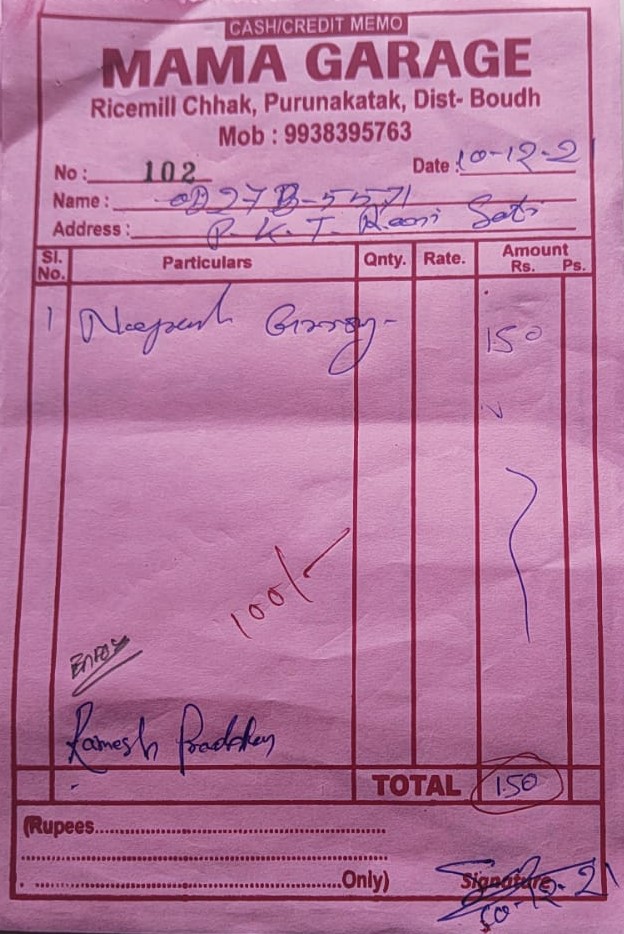 CASH/CREDIT MEMO
MAMA GARAGE
Ricemill Chhak, Purunakatak, Dist- Boudh
Mob : 9938395763
No : 102 Date : 10-12-21
Name : OD27B-5571
Address : P. K. T. Rani Sati
Sl. No. Particulars Qnty. Rate. Amount Rs. Ps.
1 150
100/-
Ramesh Pradhan
TOTAL 150
(Rupees
Only) Signature
10-12-21